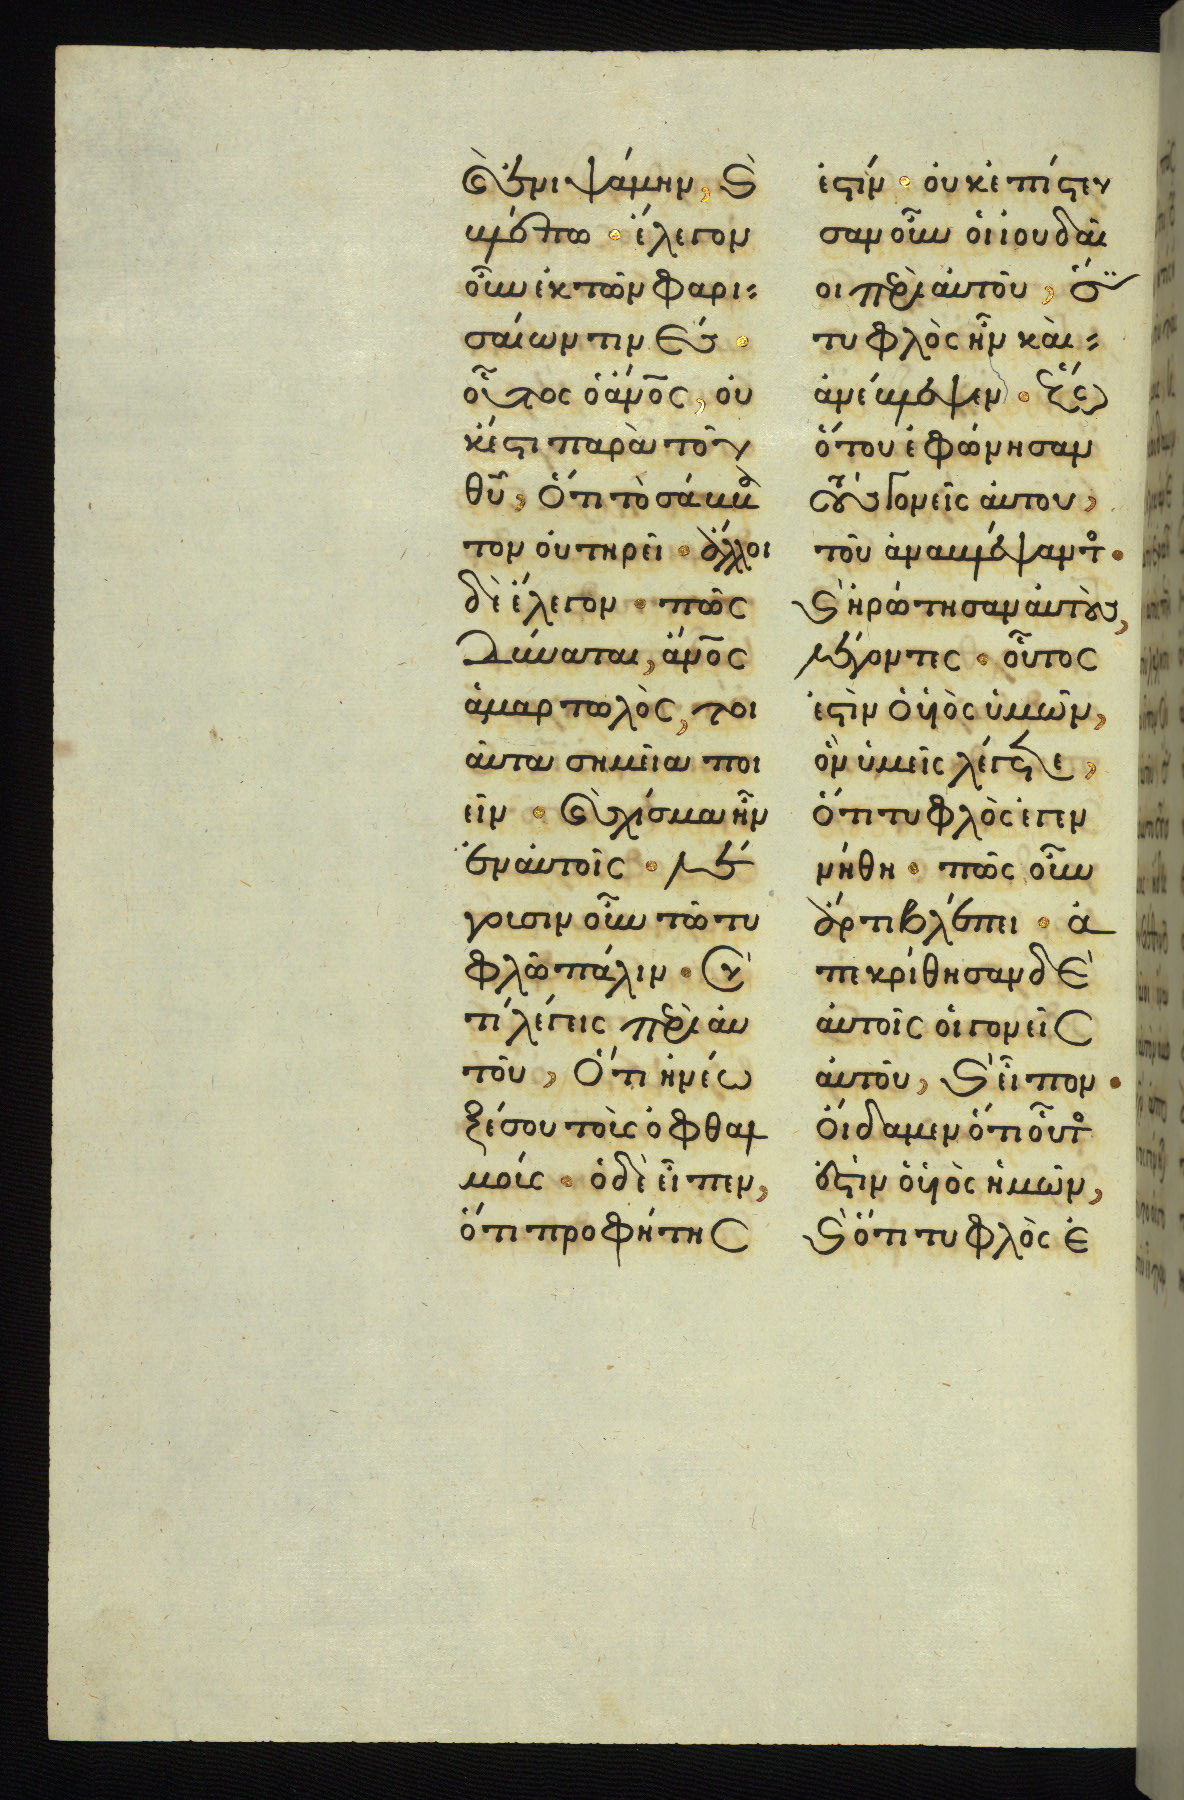 ἐνιψάμην, καὶ
βλέπω · ἔλεγον
οὖν ἐκ τῶν φαρι=
σαίων τινές ·
οὗτος ὁ ἄνος, οὐ
κέστι παρὰ τοῦ
θῦ, ὅτι τὸ σάββα
τον οὐ τηρεῖ · ἄλλοι
δὲ ἔλεγον · πῶς
δύναται, ἄνος
ἁμαρτωλὸς, τοι
αῦτα σημεῖα ποι
εῖν · καὶ σχίσμα ἦν
ἐν αὐτοῖς · λέ
γουσιν οὖν τῶ τυ
φλῶ πάλιν · σὺ
τί λέγεις περὶ αὐ
τοῦ, ὅτι ἠνέω
ξέ σου τοὺς ὀφθαλ
μούς · ὁ δὲ εἶπεν,
ὅτι προφήτης
ἐστίν · οὐκ ἐπίστευ
σαν οὖν οἱ ἰουδαῖ
οι περὶ αὐτοῦ, ὅτι
τυφλὸς ἦν καὶ =
ἀνέβλεψεν · ἕως
ὅτου ἐφώνησαν
τοὺς γονεῖς αὐτοῦ,
τοῦ ἀναβλέψαντος ·
καὶ ἠρώτησαν αὐτοὺς,
λέγοντες · οὗτος
ἐστὶν ὁ υἱὸς ὑμῶν,
ὃν ὑμεῖς λέγετε,
ὅτι τυφλὸς ἐγεν
νήθη · πῶς οὖν
ἄρτι βλέπει · ἀ
πεκρίθησαν δὲ
αὐτοῖς οἱ γονεῖς
αὐτοῦ, καὶ εἶπον ·
οἴδαμεν ὅτι οὗτος
ἐστὶν ὁ υἱὸς ἡμῶν,
καὶ ὅτι τυφλὸς ἐ